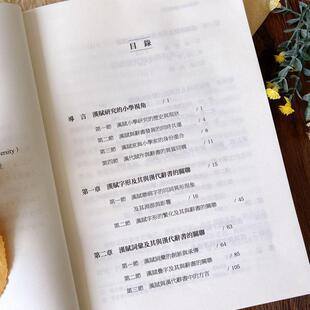 目錄
導言 漢賦研究的小學視角 / 1
第一節 漢賦小學研究的歷史與現狀 / 1
第二節 漢賦與辭書發展的同終共運 / 4
第三節 漢賦家與小學家的身份複合 / 6
第四節 漢代賦作與辭書的異質同構 / 11
第一章 漢賦字形及其與漢代辭書的關聯 / 15
第一節 漢賦聯綿字的同詞異形現象
及其淵源與影響 / 16
第二節 漢賦字形的繁化及其與辭書的關聯 / 45
第二章 漢賦詞彙及其與漢代辭書的關聯 / 63
第一節 漢賦詞彙的創新與承傳 / 64
第二節 漢賦疊字及其與辭書的關聯 / 85
第三節 漢賦與漢代中的方言 / 105
ersity )